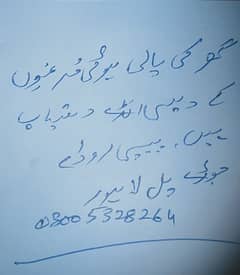 گھر کی پالی ہوئی مرغیوں
کے دیسی انڈے دستیاب
ہیں، بیبیی روڈ
جوڑے پل لاہور
03005328264